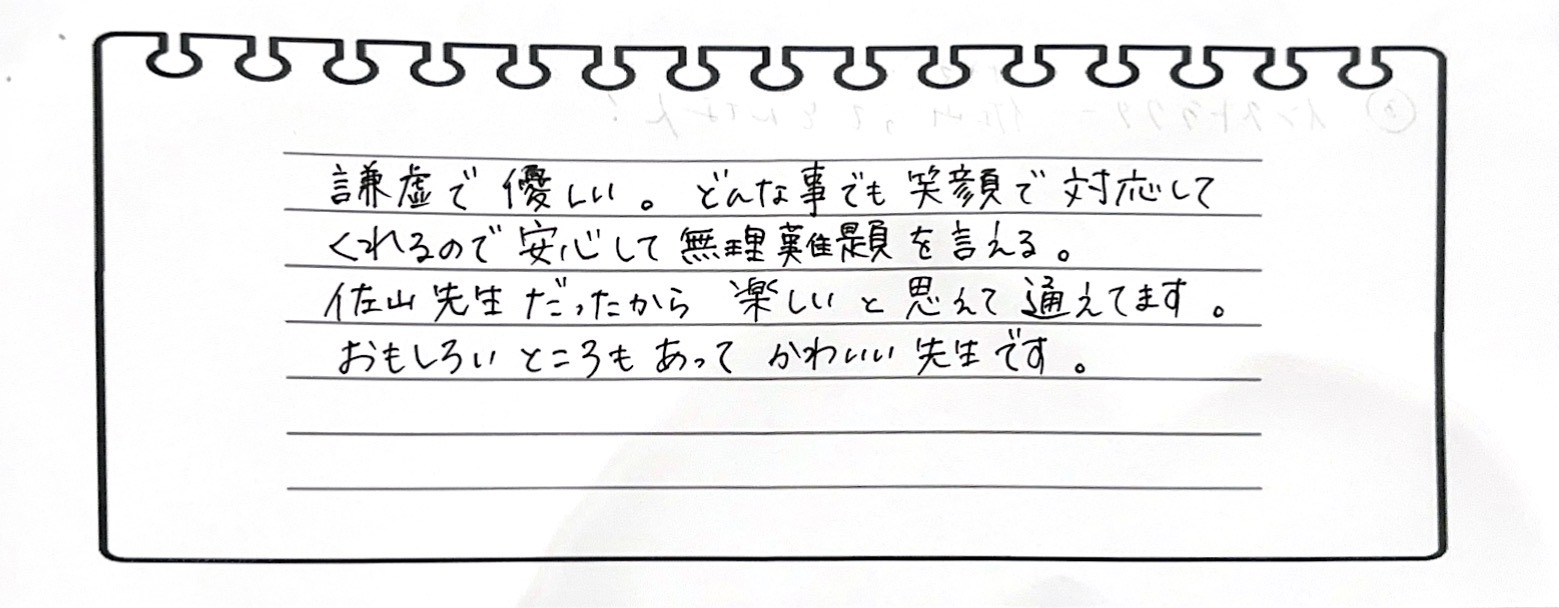 謙虚で優しい。どんな事でも笑顔で対応して
くれるので安心して無理難題を言える。
佐山先生だったから 楽しいと思えて通えてます。
おもしろいところもあって かわいい先生です。